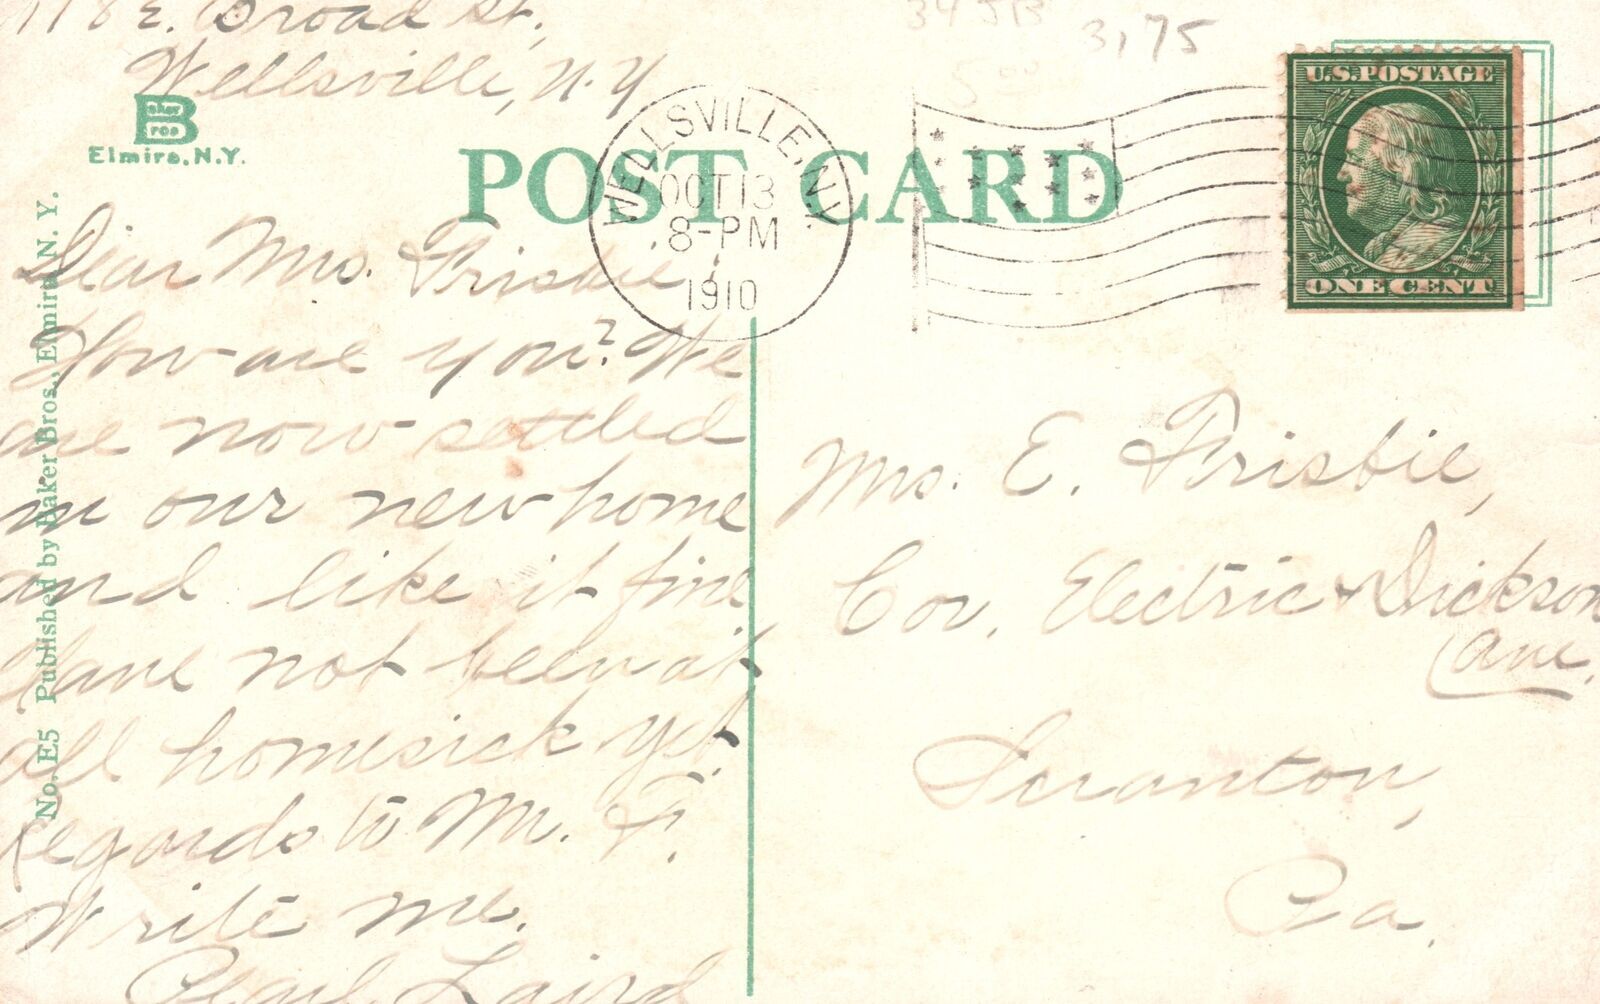 118 E. Broad St,
Wellsville, N.Y
Baker Bros
Elmira, N.Y.
POST CARD
WELLSVILLE, N.Y.
OCT 13
8-PM
1910
3,75
5 00
U.S. POSTAGE
ONE CENT
No. E5 Published by Baker Bros., Elmira N. Y.
Dear Mrs. Frisbie;
How are you? We
are now settled
in our new home
and like it fine
Have not been at
all homesick yet.
Regards to Mr. F.
Write me.
Pearl Laird
Mrs. E. Frisbie,
Cor. Electric & Dickson
Ave.
Scranton,
Pa.